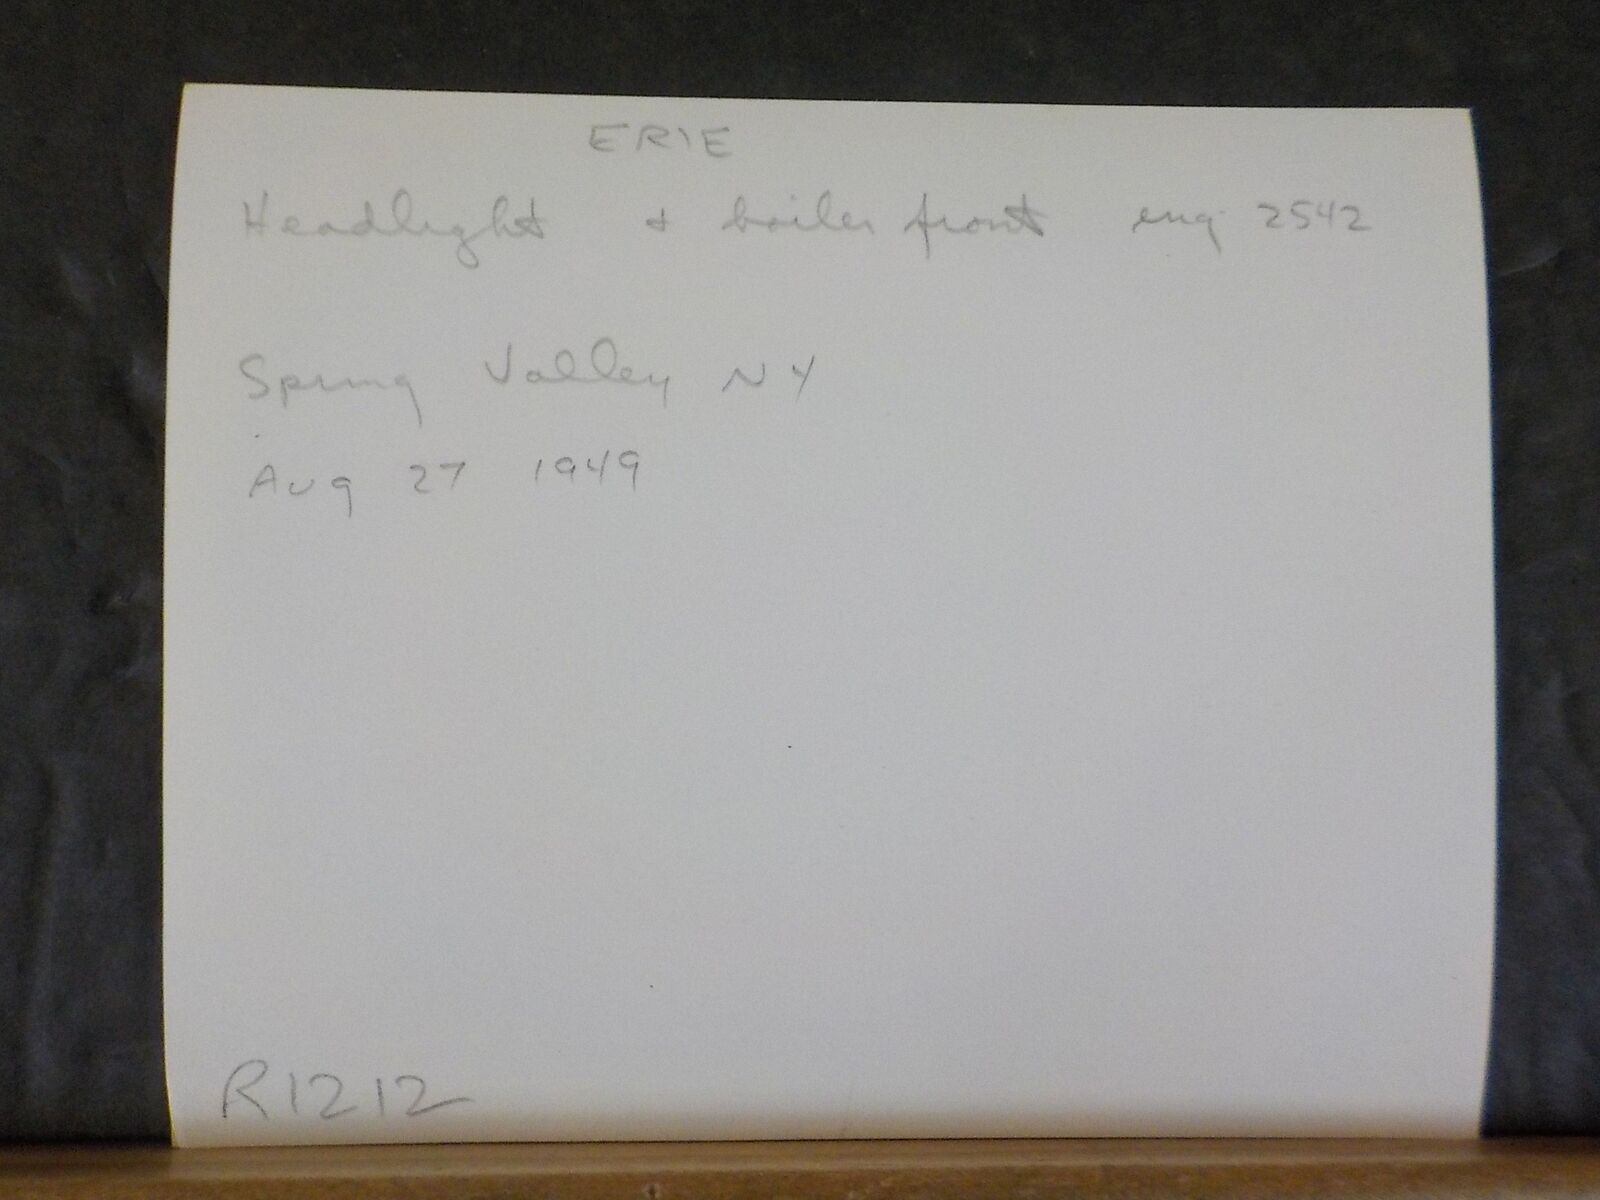 ERIE
Headlight + boiler front eng 2542
Spring Valley NY
Aug 27 1949
R1212